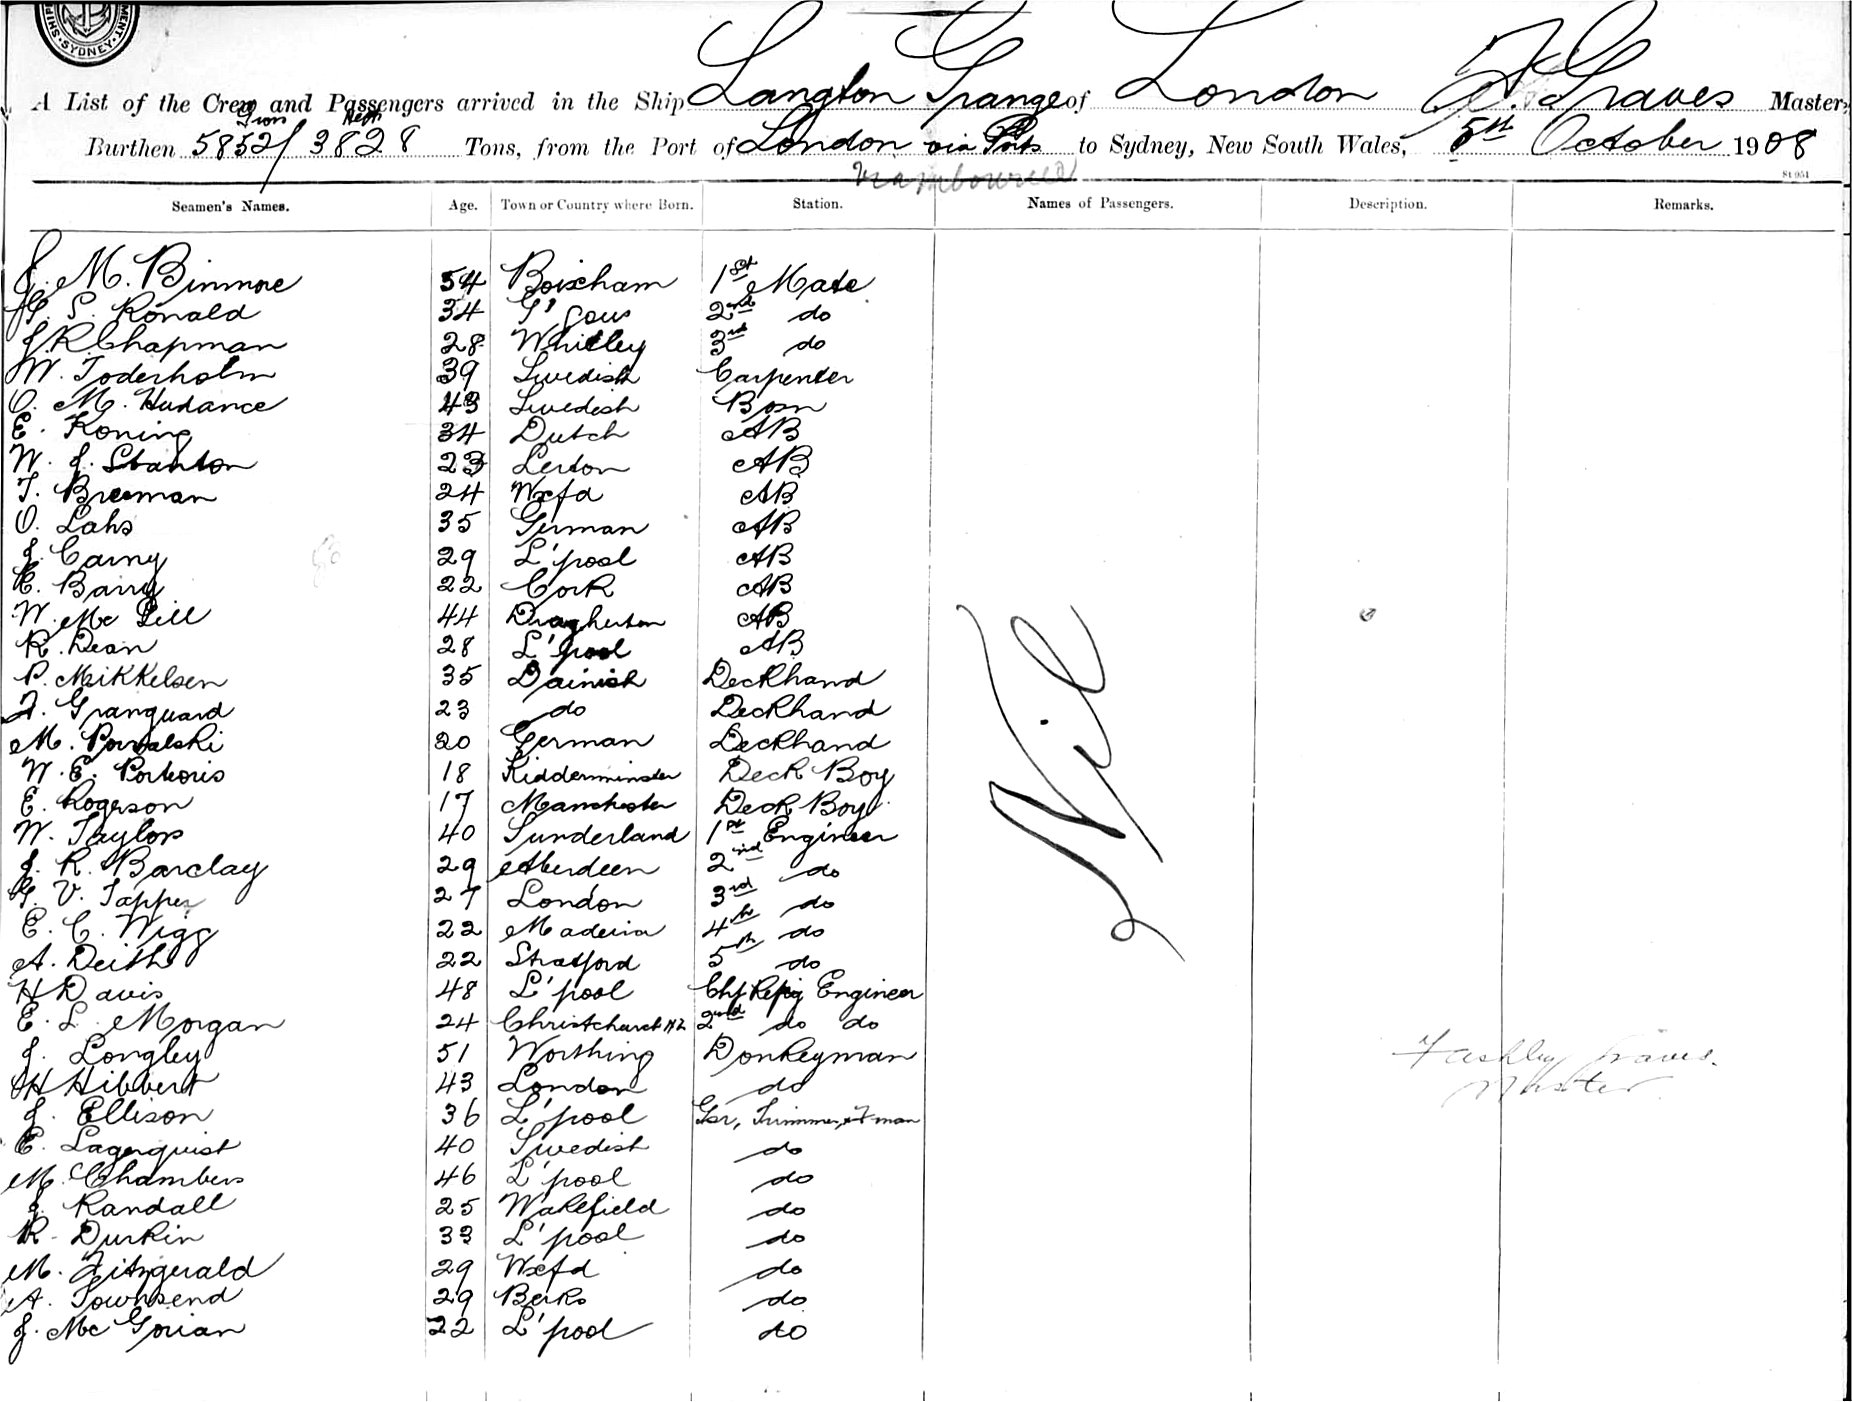 SYDNEY
A List of the Crew and Passengers arrived in the Ship Langton Grange of London F. A. Graves Master,
Gross Nett
Burthen 5852/3828 Tons, from the Port of London via Ports to Sydney, New South Wales, 5th October 1908
Seamen's Names. Age. Town or Country where Born. Station. Names of Passengers. Description. Remarks.
J. M. Binmore 54 Brixham 1st Mate
S. Ronald 34 2nd do
J R Chapman 28 Whitley 3rd do
W. Toderholm 39 Swedish Carpenter
O. M. Hudance 43 Swedish Bosn
E. Koning 34 Dutch AB
W. J. Stanton 23 AB
T. Breeman 24 Wxfd AB
O. Lahs 35 German AB
J. Carny 29 L'pool AB
E. Barry 22 Cork AB
W. Mc Gill 44 AB
R. Dean 28 L'pool AB
P. Mikkelsen 35 Dainish Deckhand
F. Granquard 23 do Deckhand
M. Powalski 20 German Deckhand
W. E. Portoris 18 Kidderminster Deck Boy
E. Rogerson 17 Manchester Deck Boy
W. Taylor 40 Sunderland 1st Engineer
J. R. Barclay 29 Aberdeen 2nd do
G. V. Tapper 27 London 3rd do
E. C. Wigg 22 Madeira 4th do
A. Deith 22 Stratford 5th do
H Davis 48 L'pool Chf Refrig Engineer
E. L. Morgan 24 Christchurch NZ 2nd do do
J. Longley 51 Worthing Donkeyman
H Hibbert 43 London do
J. Ellison 36 L'pool Gsr, Trimmer, & F man
E. Lagerquist 40 Swedish do
M. Chambers 46 L'pool do
J. Randall 25 Wakefield do
R. Durkin 33 L'pool do
M. Fitzgerald 29 Wxfd do
A. Townsend 29 Berks do
J. Mc Gorian 22 L'pool do
Nil
F Ashley Graves.
Master.